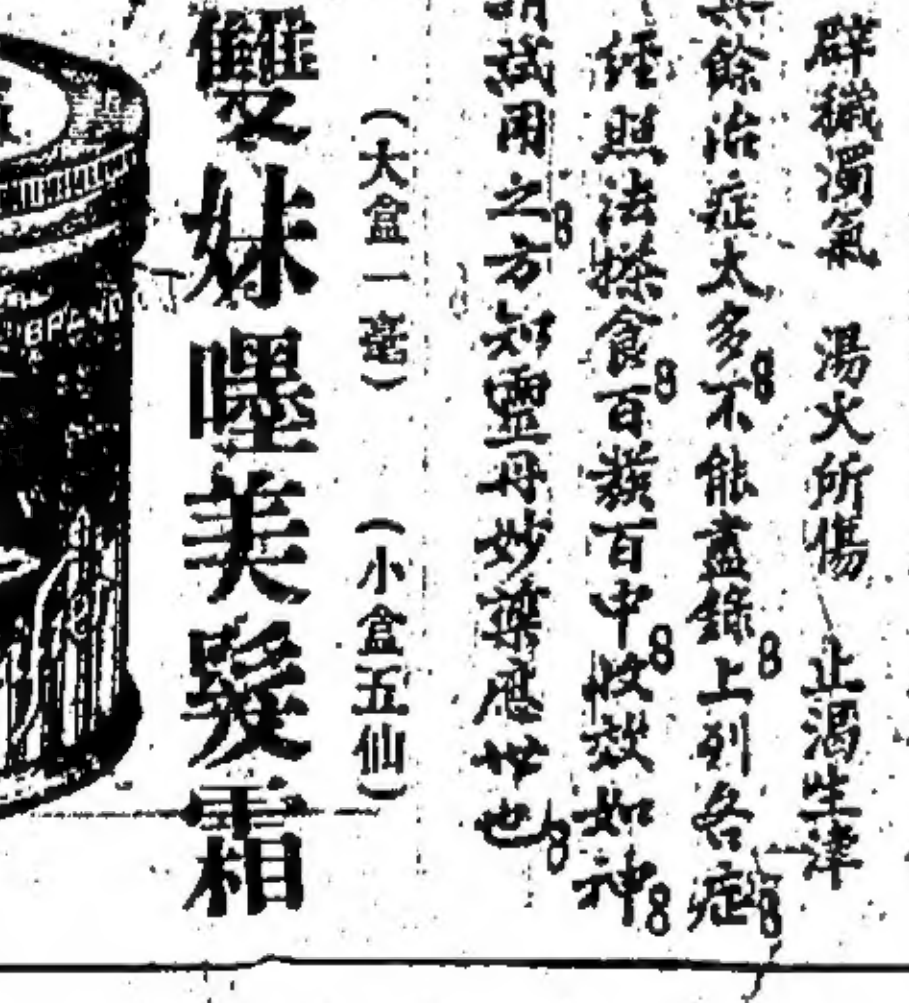 辟穢濁氣　湯火所傷　止渴生津
其餘治症太多不能盡錄上列各症
經照法搽食百發百中收效如神
請試用之方知靈丹妙藥應世也
（大盒一毫）　（小盒五仙）
雙妹嚜美髮霜
BRAND